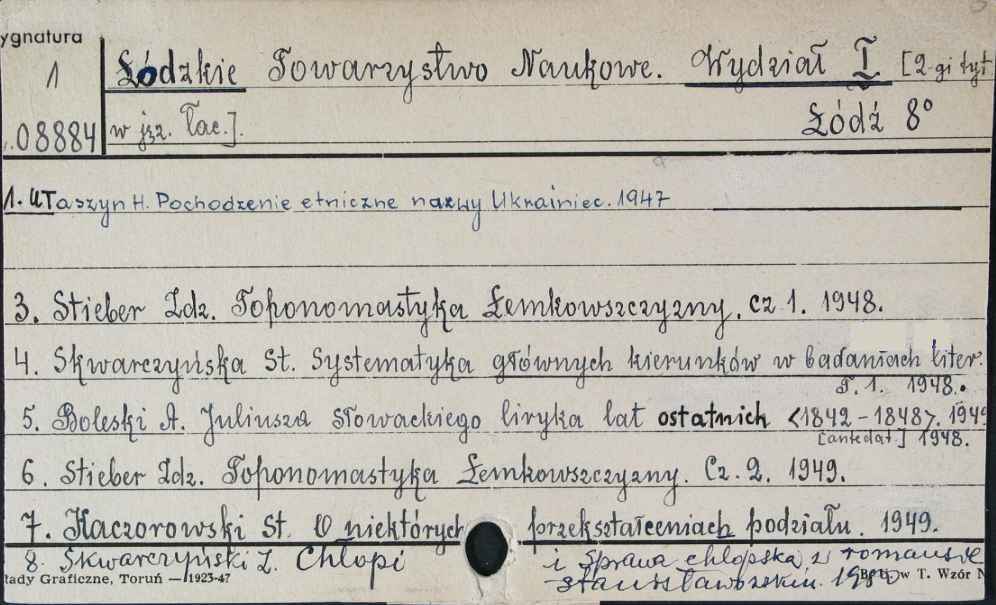 ygnatura
1 Łódzkie Towarzystwo Naukowe. Wydział I [2-gi tyt
.08884 w jęz. łac.]. Łódź 8°
1. UTaszyn H. Pochodzenie etniczne nazwy Ukrainiec. 1947
3. Stieber Zdz. Toponomastyka Łemkowszczyzny. cz 1. 1948.
4. Skwarczyńska St. Systematyka głównych kierunków w badaniach liter.
T. 1. 1948.
5. Boleski A. Juliusza Słowackiego liryka lat ostatnich <1842 - 1848>. 1949
[antedat.] 1948.
6. Stieber Zdz. Toponomastyka Łemkowszczyzny. Cz. 2. 1949.
7. Kaczorowski St. O niektórych przekształceniach podziału. 1949.
8. Skwarczyński Z. Chłopi i sprawa chłopska w romansie
stanisławowskim.
łady Graficzne, Toruń — 1923-47 w T. Wzór N